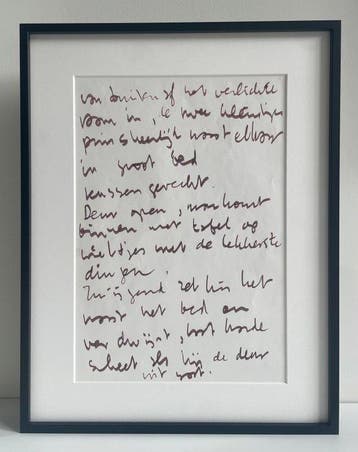 van buiten af het verlichte
raam in, de twee kleintjes
prinsheerlijk naast elkaar
in groot bed
kussengevecht.
Deur open, man komt
binnen met tafel op
wieltjes met de lekkerste
dingen.
zet hij het
naast het bed en
verdwijnt, laat harde
scheet als hij de deur
uit gaat.